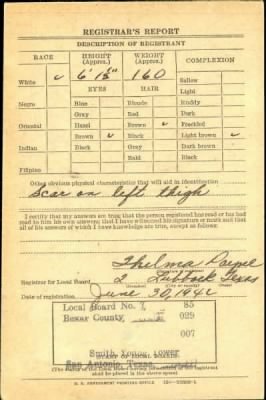 REGISTRAR'S REPORT
DESCRIPTION OF REGISTRANT
RACE HEIGHT (Approx.) WEIGHT (Approx.) COMPLEXION
White ✓ 6' 1½" 160 Sallow
EYES HAIR Light
Negro Blue Blonde Ruddy
Gray Red Dark
Oriental Hazel Brown ✓ Freckled
Brown ✓ Black Light brown ✓
Indian Black Gray Dark brown
Bald Black
Filipino
Other obvious physical characteristics that will aid in identification
Scar on left thigh
I certify that my answers are true; that the person registered has read or has had
read to him his own answers; that I have witnessed his signature or mark and that
all of his answers of which I have knowledge are true, except as follows:
Thelma Payne
Registrar for Local Board 2 Lubbock Texas
Date of registration June 30, 1942
Local Board No. 7 85
Bexar County 029
007
Smith Young Tower
San Antonio, Texas
(STAMP OF LOCAL BOARD)
(The stamp of the Local Board having jurisdiction of the registrant
shall be placed in the above space)
U. S. GOVERNMENT PRINTING OFFICE